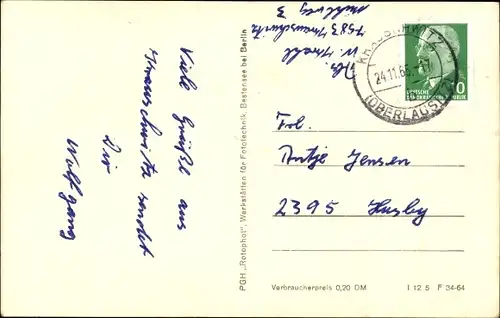 Viele Grüße aus
Krauschwitz sendet
Dir
Wolfgang
PGH „Rotophot", Werkstätten für Fototechnik, Bestensee bei Berlin
Abs.
W. Krahl
7583 Krauschwitz
3
KRAUSCHWITZ
24.11.65.-17
(OBERLAUSITZ)
10
DEUTSCHE
DEMOKRATISCHE REPUBLIK
Frl.
Antje Jensen
2395 Husby
Verbraucherpreis 0,20 DM
I 12 5 F 34-64